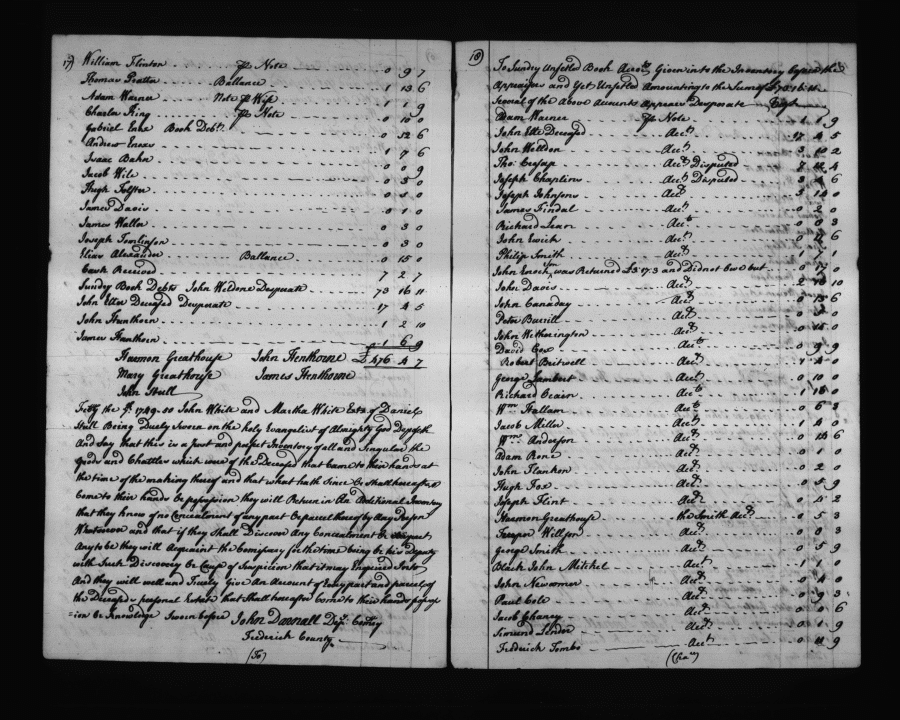 17) William Flinton ... P Note ... 0 9 7
Thomas Prator ... Ballance ... 1 13 6
Adam Warner ... Note P Wife ... 1 1 9
Charles King ... P Note ... 0 10 0
Gabriel Enke Book Debts ... 0 12 6
Andrew Enox
Isaac Bahn ... 1 7 6
Jacob Wile ... 0 0 9
Hugh ... 0 5 0
0 5 0
James Davis ... 0 1 0
James Waller ... 0 3 0
Joseph Tomlinson ... 0 3 0
Elias Alexander ... Ballance ... 0 15 0
Cash Received ... 7 2 7
Sundry Book Debts John Wedone Desperate ... 73 16 11
John Elle Deceased Desperate ... 17 4 5
John Hanthorn ... 1 2 10
James Hanthorn ... 1 6 9
Harmon Greathouse John Henthorne £476 4 7
Mary Greathouse James Henthorne
John Stull
Feby the 1749-50 John White and Martha White Exts. of Daniel
Stull Being Duely Sworn on the holy Evangelist of Almighty God Deposeth
And Say that this is a just and perfect Inventory of all and Singular the
Goods and Chattles which were of the Deceased that Came to their hands at
the time of the making thereof and that what hath Since or Shall hereafter
Come to their hands or possession they will Return in An Additional Inventory
that they know of no Concealment of any part or parcel thereof by Any Person
Whatsoever and that if they Shall Discover Any Concealment or Suspect
Any to be they will Acquaint the Comissary for the time being or his Deputy
with Such Discovery or Cause of Suspicion that it may Enquired Into
And they will well and Truely Give An Account of Every part and parcel of
the Deceaseds personal Estate that Shall hereafter Come to their hands posses
=ion or knowledge Sworn before John Darnall Depy. Comry
Frederick County
(To)
18) To Sundry Unsetled Book Accots. Given into the Inventory by the
Appraizers and Yet Unsetled Amounting to the Sume of £73:16:11
Several of the Above Accounts Appears Desperate
Adam Warner ... P Note ... 1 1 9
John Elle Deceased ... Acct. ... 17 4 5
John Welldon ... Acct. ... 3 10 2
Thos. Cresap ... Acct. Disputed ... 7 4
Joseph Chaplins ... Acct. Disputed ... 3 4 6
Joseph Johnsons ... Acct. ... 3 0
James Tindal ... Acct. ... 0 2 0
Richard ... Acct. ... 0 0 3
John Ewich ... Acct. ... 0 6
Philip Smith ... Acct. ... 1 7 1
John Enock Jun was Returned £3:17:3 and Did not Owe but ... 0 17 0
John Davis ... Acct. ... 2 10
John Canaday ... Acct. ... 0 13 6
Peter Burrill ... Acct. ... 0 0
John Witherington ... Acct. ... 0 0
David Cox ... Acct. ... 0 9 9
Robert Britwell ... Acct. ... 7 4 0
George Lambert ... Acct. ... 0 10 0
Richard ... Acct. ... 1 0
Wm. Hallam ... Acct. ... 0 6 3
Jacob Miller ... Acct. ... 1 4 0
Wm. Anderson ... Acct. ... 0 6
Adam Rone ... Acct. ... 0 1 0
John Flanken ... Acct. ... 0 2 0
Hugh Fox ... Acct. ... 0 5 9
Joseph Flint ... Acct. ... 0 4 2
Harmon Greathouse ... the Smith Acct. ... 0 5 3
Willson ... Acct. ... 0 0 3
George Smith ... Acct. ... 0 5 9
Black John Mitchel ... Acct. ... 1 1 0
John Newcomer ... Acct. ... 0 4 0
Paul Cole ... Acct. ... 0 9 3
Jacob Chaney ... Acct. ... 0 0 6
Simund Lender ... Acct. ... 0 1 9
Frederick Tombo ... Acct. ... 0 11 9